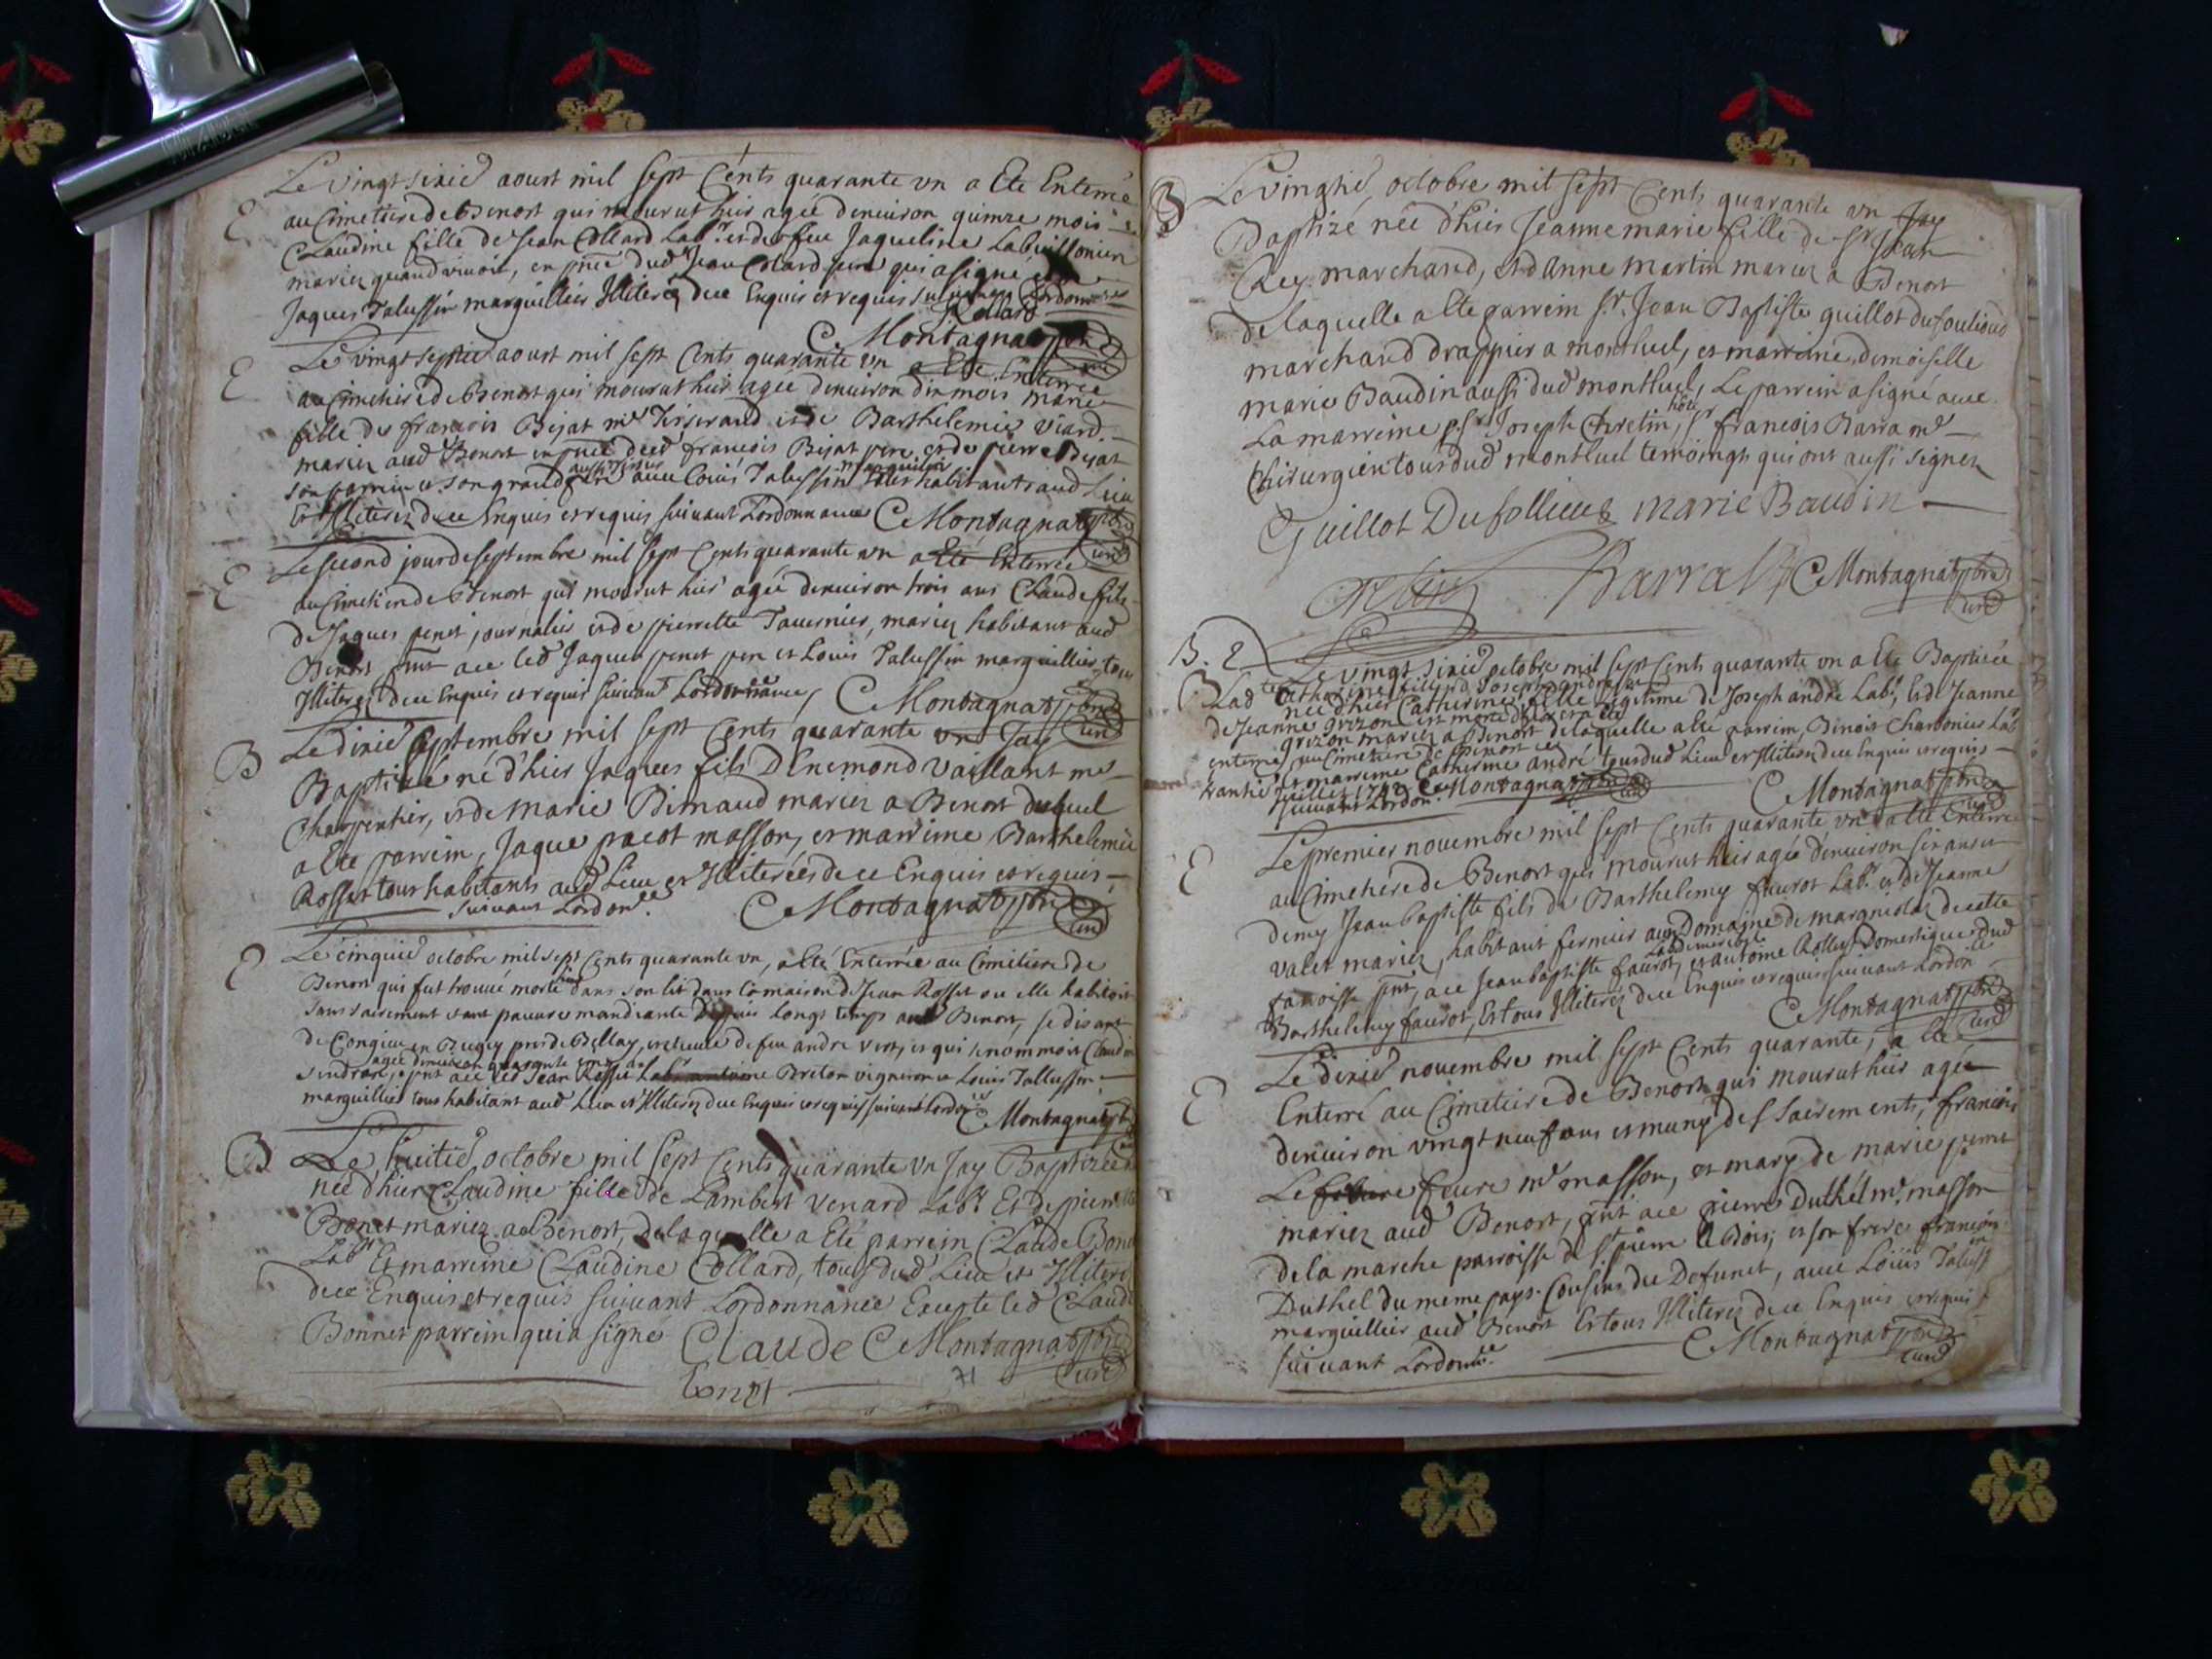 Le vingt sixie aoust mil sept Cents quarante vn a Ete Enterrée
E
au Cimetiere de Benost qui mourut hier agée denuiron quinze mois
Claudine fille de Jean Collard Labr et de feu Jaqueline
mariez quand viuoit, en pnce dud Jean Collard pere qui a signé
Jaques Talussin marguillier Illiterez de ce Enquis et requis suiuant Lordonnance
JCollard
C Montagnat ptre curé
Le vingt septie aoust mil sept Cents quarante vn a Ete Enterrée
E
au Cimetiere de Benost qui mourut hier agée denuiron dix mois marie
fille de francois Bijat me Tisserand et de Barthelemie Viard
mariez aud Benost en pnce dud francois Bijat pere et de pierre Bijat
son parrein et son grand pere aussi Tisseur auec Loüis Talussin marguillier tous habitants aud Lieu
et Illiterez de ce Enquis et requis suiuant Lordonnance C Montagnat ptre curé
E
Le second jour de septembre mil sept Cents quarante vn a Ete Enterré
au Cimetiere de Benost qui mourut hier agée denuiron trois ans Claude fils
de Jaques penet journalier et de pierrette Tauernier, mariez habitant aud
Benost pnt a ce led Jaques penet pere et Louis Talussin marguillier, tous
Illiterez de ce Enquis et requis suiuant Lordonnance, C Montagnat ptre curé
B
Le dixie septembre mil sept Cents quarante vn Jay
Baptizé né d'hier Jaques fils D Enemond Vaillant me
Charpentier, et de Marie Bimaud mariez a Benost duquel
a Ete parrein, Jaque pacot masson, et marreine Barthelemie
Rosset tous habitants aud Lieu et Illiterées de ce Enquis et requis
suiuant Lordonce. C Montagnat ptre curé
E
Le cinquie octobre mil sept Cents quarante vn, a Eté Enterrée au Cimetiere de
Benon qui fut trouué morte hier dans son lit dans la maison de Jean Rosset ou elle habitoit
sans sacrement etant pauure mandiante depuis longs temps aud Benost, se disant
de Congieu en Bugey pres de Bellay, et veuue de feu andre Vert, et qui se nommoit Claudine
agée denuiron quarante
pnt a ce led Jean Rosset Labr antoine Breton vigneron et Louis Tallussin
marguillier tous habitant aud Lieu et Illiterez de ce Enquis et requis suiuant Lordonce
C Montagnat ptre
B
Le huitie octobre mil sept Cents quarante vn Jay Baptizée
née d'hier Claudine fille de Lambert Venard Labr Et de pierrette
Bonet mariez a Benost, de laquelle a Eté parrein Claude Bonet
Labr Et marreine Claudine Collard, tous dud Lieu et Illiterez
de ce Enquis et requis suiuant Lordonnance Excepte led Claude
Bonnet parrein qui a signé Claude C Montagnat ptre
bonet 71 curé
B
Le vingtie octobre mil sept Cents quarante vn Jay
Baptizé née d'hier Jeanne marie fille de Sr Jean
Rey marchand, et d anne Martin mariez a Benost
de laquelle a Ete parrein Sr. Jean Baptiste guillot dufoulioud
marchand drappier a montluel, et marreine demoiselle
marie Baudin aussi dud montluel, Le parrein a signé auec
La marreine p. Sr Joseph Chretin hôte, Sr francois Barra me
Chirurgien tous dud montluel temoingts qui ont aussi signez
Guillot Dufollieux marie Baudin
Cretin Barra C Montagnat ptre curé
B. 2
Le vingt sixie octobre mil sept Cents quarante vn a Ete Baptizée
Lad te Catherine fille de Joseph andré et
née d'hier Catherine fille legitime de Joseph andré Labr, Et de Jeanne
de Jeanne grizon est morte
grizon mariez a Benost de laquelle a Eté parrein, Benoit Charbonier Labr
enterrée au Cimetiere de Benost
et marreine Catherine andré tous dud Lieu et Illiterez de ce Enquis et requis
trantie Juillet 1742 C Montagnat ptre curé
suiuant Lordonce. C Montagnat ptre curé
Le premier nouembre mil sept Cents quarante vn a Ete Enterré
E
au Cimetiere de Benost qui mourut hier agée denuiron six ans et
demy Jean baptiste fils de Barthelemy faurot Labr. et de Jeanne
Valet mariez, habitant fermier au Domaine de margniolaz de cette
parroisse pnt, a ce Jean baptiste faurot, et antoine Rollet Domestique dud
Barthelemy faurot, Et tous Illiterez de ce Enquis et requis suiuant Lordonce
C Montagnat ptre curé
E
Le dixie nouembre mil sept Cents quarante, a Ete
Enterré au Cimetiere de Benost qui mourut hier agée
denuiron vingt neuf ans et muny des Sacrements, francois
Lefebure feure me masson, et mary de marie pernet
mariez aud Benost, pnt a ce pierre Duthel me. masson
de la marche parroisse de St pierre Le Bois, et son frere francois
Duthel du meme pays Cousins du Defunct, auec Loüis Talussin
marguillier aud Benost Et tous Illiterez de ce Enquis et requis
suiuant Lordonnce. C Montagnat ptre curé